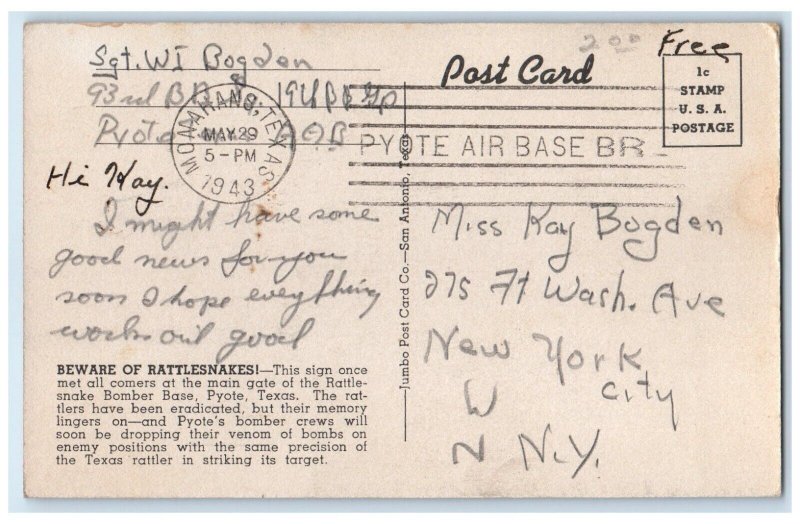 Sgt. WI Bogden
93rd BR
194 BB Gp
Pyote AAB
MONAHANS, TEXAS
MAY 29
5 - PM
1943
Post Card
2.00
Free
1c
STAMP
U. S. A.
POSTAGE
PYOTE AIR BASE BR
Hi Kay.
I might have some
good news for you
soon I hope everything
works out good
BEWARE OF RATTLESNAKES!—This sign once
met all comers at the main gate of the Rattle-
snake Bomber Base, Pyote, Texas. The rat-
tlers have been eradicated, but their memory
lingers on—and Pyote's bomber crews will
soon be dropping their venom of bombs on
enemy positions with the same precision of
the Texas rattler in striking its target.
—Jumbo Post Card Co.—San Antonio, Texas
Miss Kay Bogden
275 Ft Wash. Ave
New York
City
W
N N.Y.